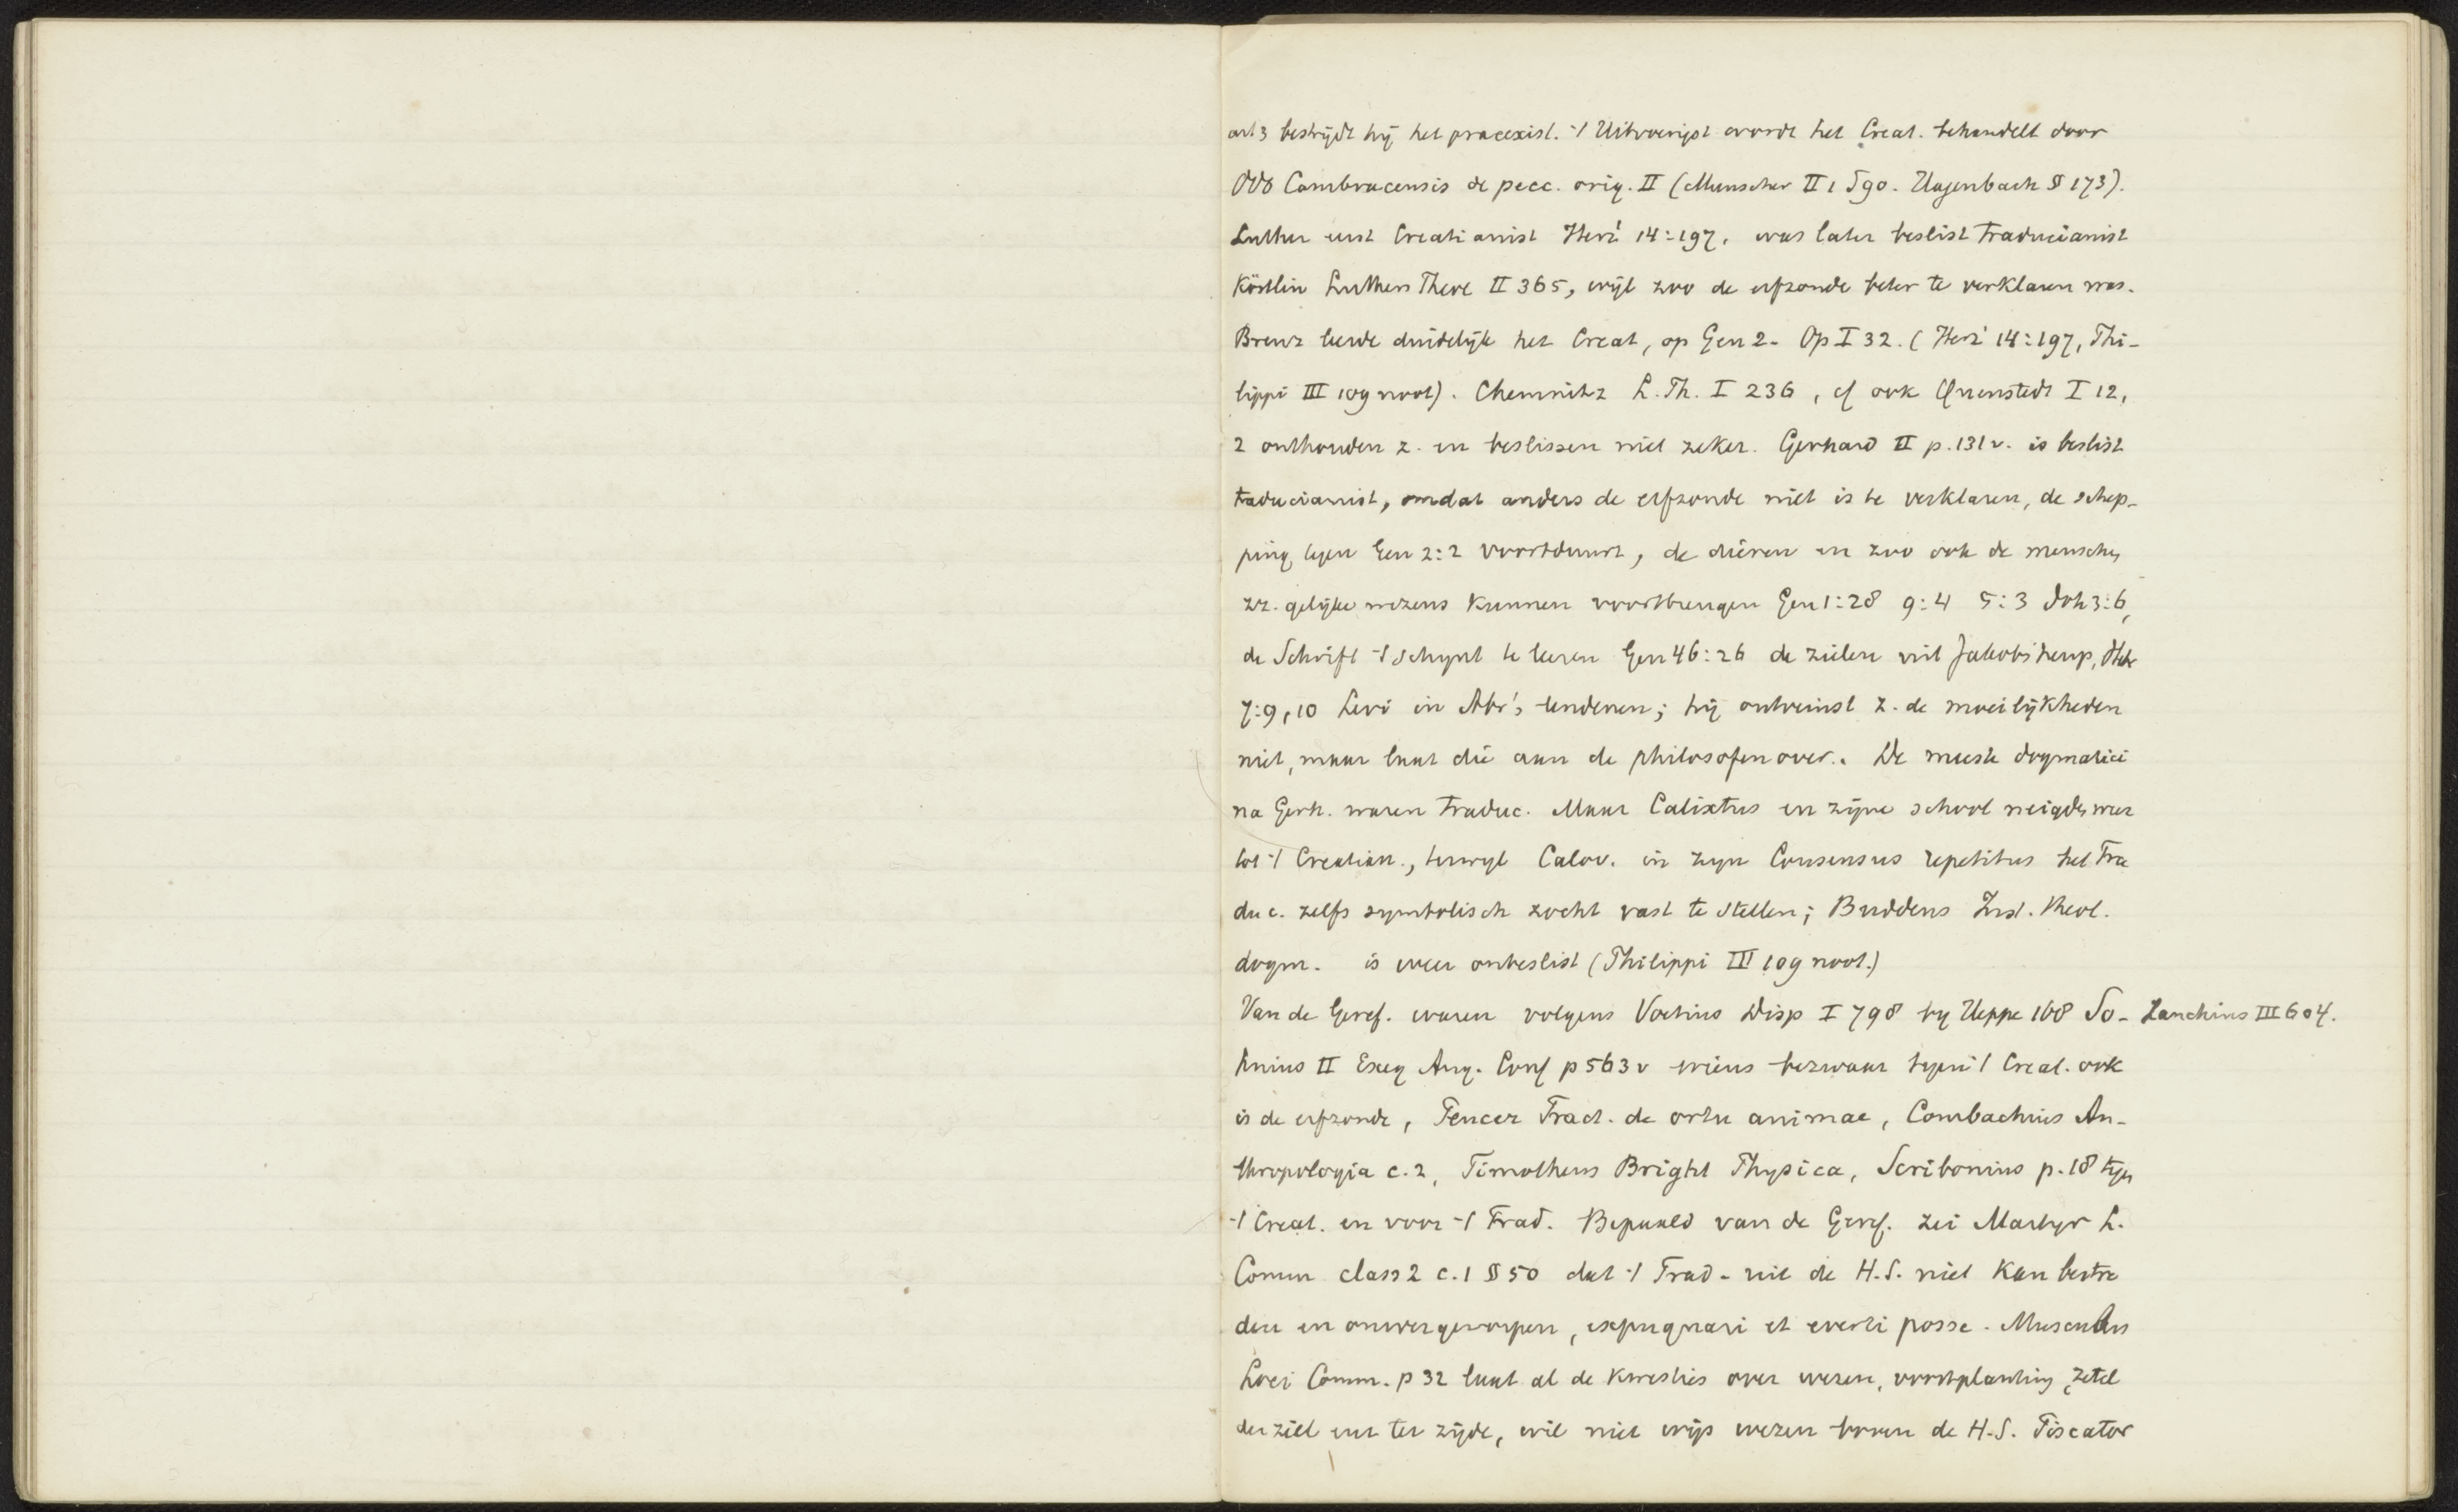 art 3 bestrijdt hij het praeexist. 't Uitvoerigst wordt het Creat. behandelt door
Odo Cambracensis de pecc. orig. II (Munscher II 1 S90. Hagenbach § 173).
Luther eerst Creatianist Herz' 14:197, was later beslist traducianist
Köstlin Luthers Theol II 365, wijl zoo de erfzonde beter te verklaren was.
Brenz leerde duidelijk het Creat, op Gen 2. Op I 32. (Herz' 14:197, Phi-
lippi III 109 noot). Chemnitz L. Th. I 236, cf ook Quenstedt I 12,
2 onthouden z. en beslissen niet zeker. Gerhard II p. 131 v. is beslist
traducianist, omdat anders de erfzonde niet is te verklaren, de schep-
ping tegen Gen 2:2 voortduurt, de dieren en zoo ook de menschen
zz. gelijke wezens kunnen voortbrengen Gen 1:28 9:4 5:3 Joh 3:6,
de Schrift 't schynt te leeren Gen 46:26 de zielen uit Jakobs heup, Heb
7:9,10 Levi in Abr's lendenen; hij ontveinst z. de moeilijkheden
niet, maar laat die aan de philosofen over. De meeste dogmatici
na Gerh. waren traduc. Maar Calixtus en zijne school neigden weer
tot 't Creatian., terwyl Calov. in zyn Consensus repetitus het Tra
duc. zelfs symbolisch zocht vast te stellen; Buddeus Inst. theol.
dogm. is weer onbeslist (Philippi III 109 noot.)
Van de Geref. waren volgens Voetius Disp I 798 by Heppe 168 So- Zanchius III 604.
hnius II Exeg Aug. Conf p 563 v wiens bezwaar tegen 't Creat. ook
is de erfzonde, Peucer Tract. de ortu animae, Combachius An-
thropologia c. 2, Timotheus Bright Physica, Scribonius p. 18 tegen
't Creat. en voor 't Trad. Bepaald van de Geref. zei Martyr L.
Comm class 2 c. 1 § 50 dat 't Trad. uit de H.S. niet kan bestre
den en omvergeworpen, expugnari et everti posse. Musculus
Loci Comm. p 32 laat al de kwesties over wezen, voortplanting, zetel
der ziel enz ter zijde, wil niet wijs wezen boven de H.S. Piscator